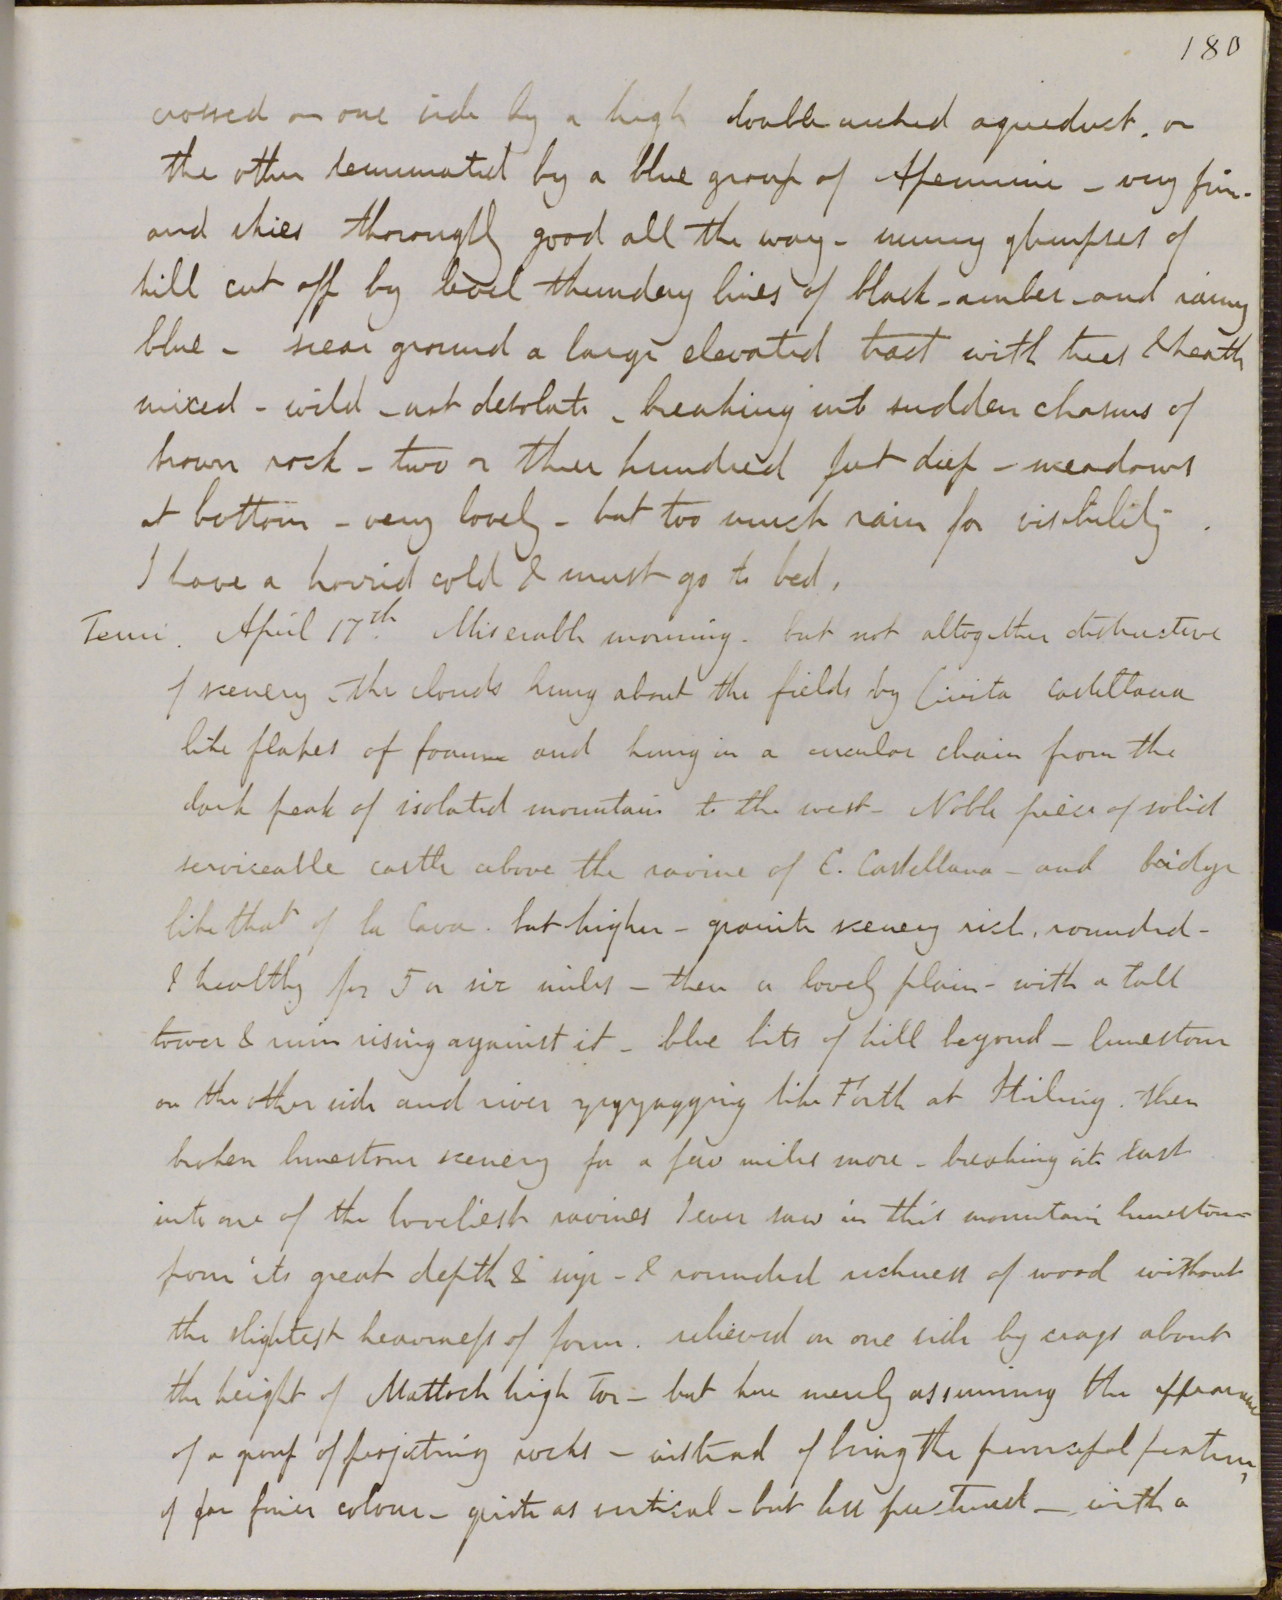 180
crossed on one side by a high double arched aqueduct. on
the other terminated by a blue group of Apennine - very fine.
and skies thoroughly good all the way - sunny glimpses of
hill cut off by level thundery lines of black - amber - and rainy
blue - near ground a large elevated tract with trees & heath
mixed - wild - not desolate - breaking into sudden chasms of
brown rock - two or three hundred feet deep - meadows
at bottom - very lovely - but too much rain for visibility.
I have a horrid cold & must go to bed.
Terni. April 17th. Miserable morning. but not altogether destructive
of scenery - the clouds hung about the fields by Civita Castellana
like flakes of foam and hung in a circular chain from the
dark peak of isolated mountain to the west - Noble piece of solid
serviceable castle above the ravine of C. Castellana - and bridge
like that of La Cava. but higher - granite scenery rich, rounded -
& healthy for 5 or six miles - then a lovely plain - with a tall
tower & ruin rising against it - blue bits of hill beyond - limestone
on the other side and river zigzagging like Forth at Stirling. then
broken limestone scenery for a few miles more - breaking at last
into one of the loveliest ravines I ever saw in this mountain limestone
from its great depth & size - & rounded richness of wood without
the slightest heaviness of form. relieved on one side by crags about
the height of Mattock high Tor - but here merely assuming the appearance
of a group of projecting rocks - instead of being the principal feature,
of far finer colour - quite as vertical - but less fractured - with a